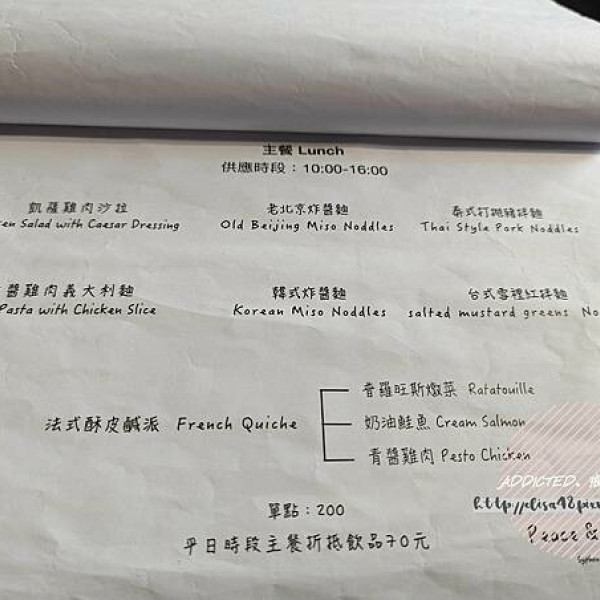 主餐 Lunch
供應時段：10:00-16:00
凱薩雞肉沙拉 老北京炸醬麵 泰式打拋豬拌麵
Salad with Caesar Dressing Old Beijing Miso Noddles Thai Style Pork Noddles
醬雞肉義大利麵 韓式炸醬麵 台式雪裡紅拌麵
Pasta with Chicken Slice Korean Miso Noddles salted mustard greens No
普羅旺斯燉菜 Ratatouille
法式酥皮鹹派 French Quiche 奶油鮭魚 Cream Salmon
青醬雞肉 Pesto Chicken
單點：200
平日時段主餐折抵飲品70元
ADDICTED.
Peace &